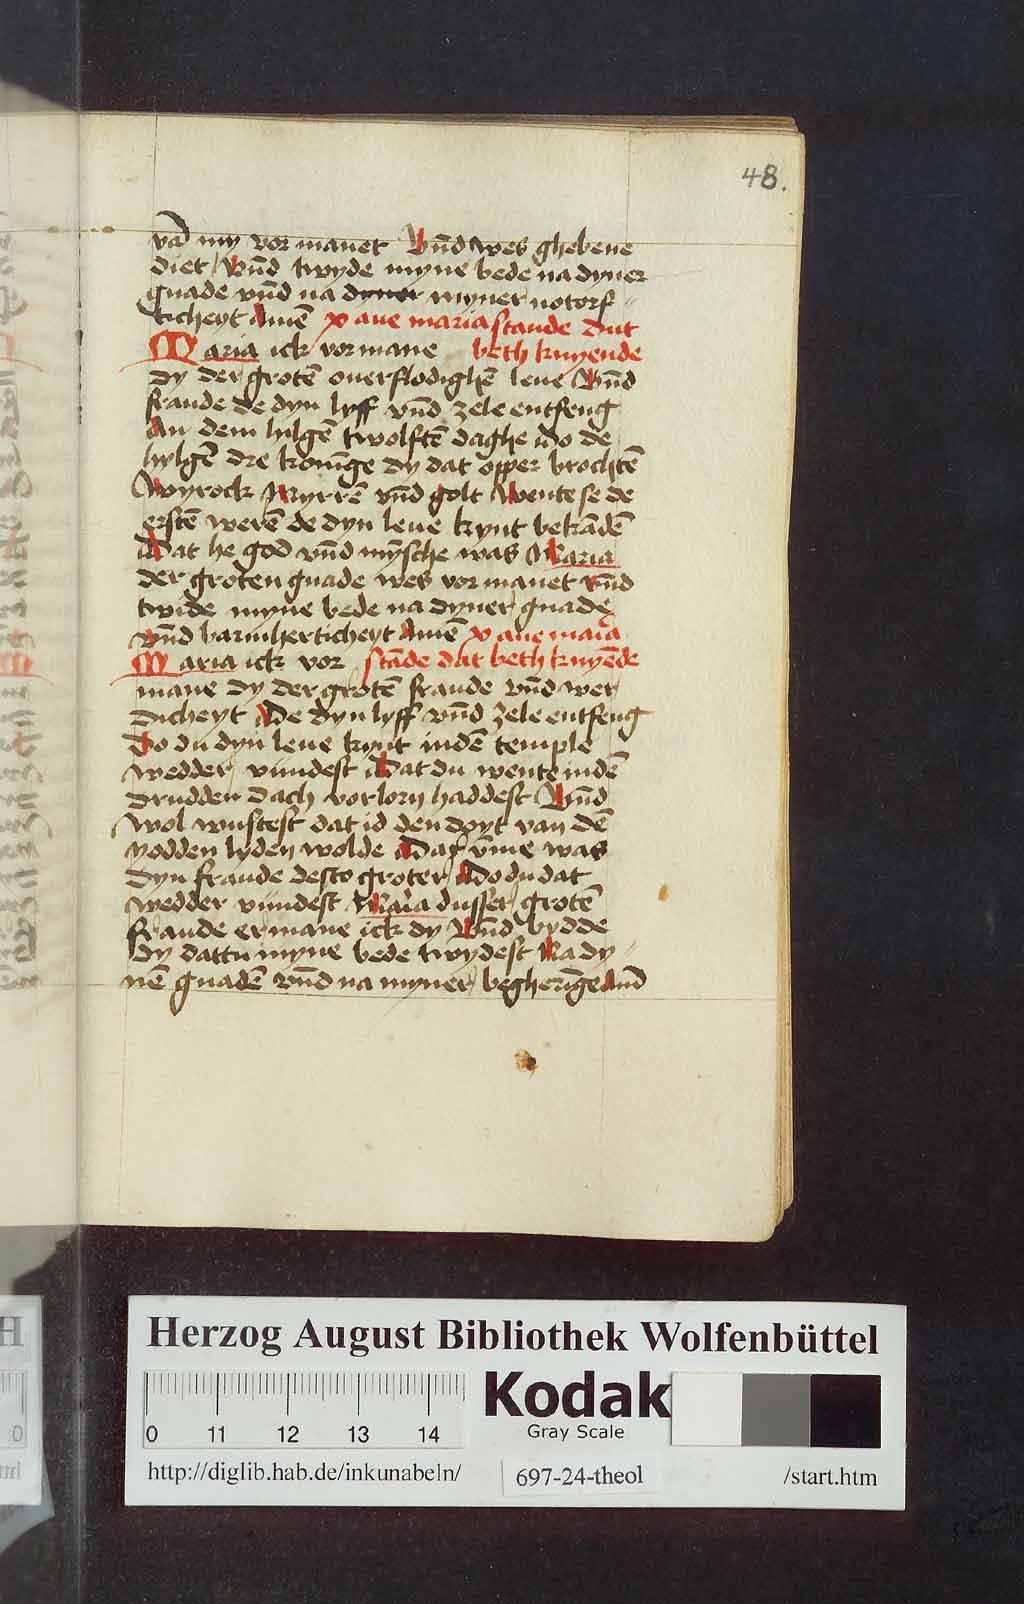 48.
vā my vor manet Vn̄d wes ghebene
diet Vn̄d twyde myne bede na dyner
gnade vn̄d na dyner myner notorf
ticheyt Amē x aue maria stande dut
Maria ick vor mane beth knyende
dy der grotē ouerflodighē leue Vn̄d
fraude de dyn lyff vn̄d zele entfeng
An dem hilgē twolftē daghe do de
hylgē dre konīge dy dat opper brochtē
Wyrock Myrrē vn̄d golt Wente se de
erstē werē de dyn leue kynt bekādē
Dat he god vn̄d mīsche was Maria
der groten gnade wes vor manet vn̄d
twide myne bede na dyner gnade
vn̄d barmherticheyt Amē v aue maria
Maria ick vor stāde dat beth knyēde
mane dy der grotē fraude vn̄d wer
dicheyt De dyn lyff vn̄d zele entfeng
Do du dyn leue kynt indē temple
wedder vundest Dat du wente indē
drudden dach vorlorn haddest Vn̄d
wol wustest dat id den doyt van dē
yodden lyden wolde Dar vme was
dyn fraude desto groter Do du dat
wedder vundest Maria dusser grotē
fraude ermane ick dy Vn̄d bydde
dy dattu myne bede twydest Na dy
nē gnadē vn̄d na myner begherīge Amē
Herzog August Bibliothek Wolfenbüttel
0 11 12 13 14
Kodak
Gray Scale
http://diglib.hab.de/inkunabeln/ 697-24-theol /start.htm